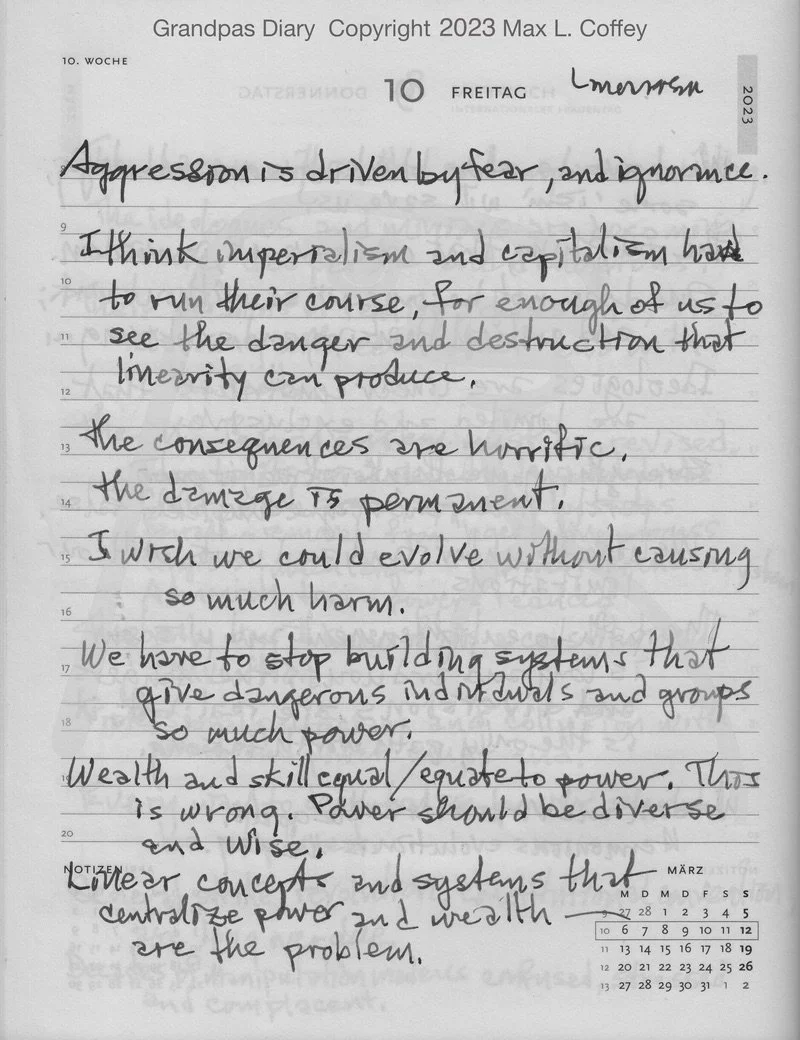 Grandpas Diary Copyright 2023 Max L. Coffey
10. WOCHE
10 FREITAG
2023
Aggression is driven by fear, and ignorance.
9
I think imperialism and capitalism had
10
to run their course, for enough of us to
11
see the danger and destruction that
linearity can produce.
12
13
the consequences are horrific.
14
the damage is permanent.
15
I wish we could evolve without causing
so much harm.
16
17
We have to stop building systems that
give dangerous individuals and groups
18
so much power.
Wealth and skill equal/equate to power. This
is wrong. Power should be diverse
20
and wise.
NOTIZEN
MÄRZ
Linear concepts and systems that
M D M D F S S
centralize power and wealth
9 27 28 1 2 3 4 5
10 6 7 8 9 10 11 12
are the problem.
11 13 14 15 16 17 18 19
12 20 21 22 23 24 25 26
13 27 28 29 30 31 1 2